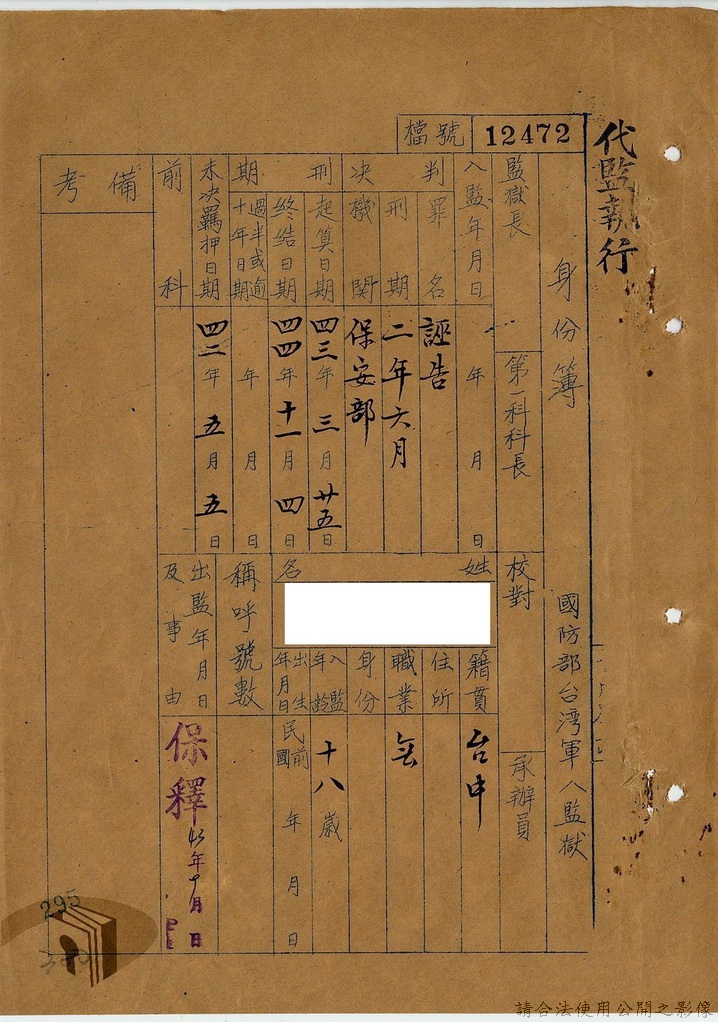 代監執行
檔號 12472
身份簿
國防部台灣軍人監獄
監獄長
第一科科長
校對
承辦員
入監年月日
年 月 日
判決
罪名
誣告
刑期
二年六月
機關
保安部
刑期
起算日期
四三年三月廿五日
終結日期
四四年十一月四日
過半或逾十年日期
年 月 日
未決羈押日期
四二年五月五日
前科
備考
姓名
籍貫
台中
住所
職業
無
身份
入監年齡
十八歲
出生年月日
民國前 年 月 日
稱呼號數
出監年月日及事由
保釋
年 月 日
295
請合法使用公開之影像